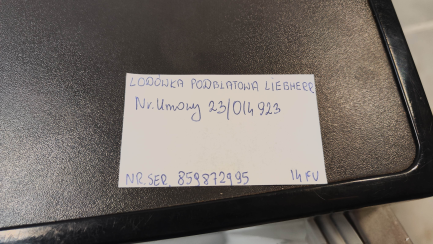 LODÓWKA PODBLATOWA LIEBHERR
Nr. Umowy 23/014923
NR. SER. 859872995 14 FV